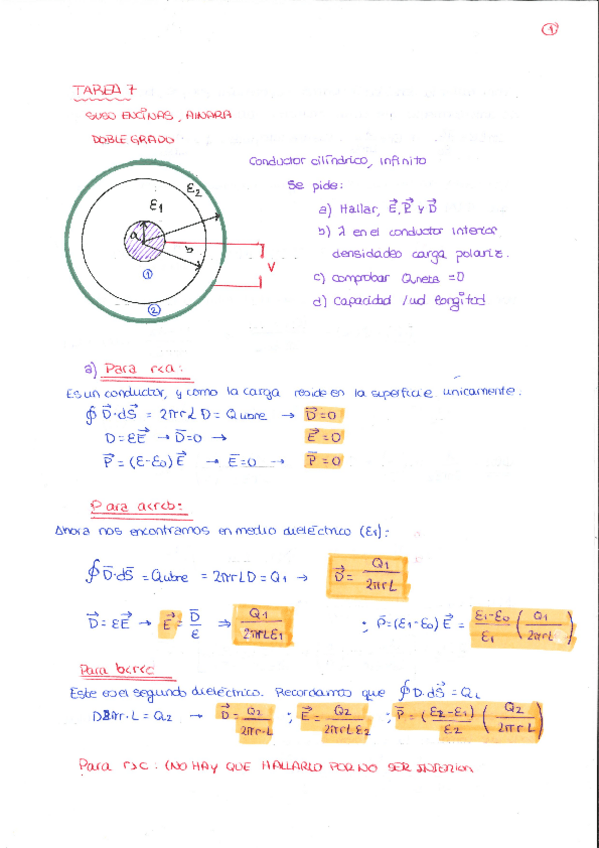 1
TAREA 7
SUSO ENCINAS, AINARA
DOBLE GRADO
Conductor cilíndrico, infinito
Se pide:
a) Hallar, E⃗, P⃗ y D⃗
b) λ en el conductor interior
densidades carga polariz.
c) comprobar Qneta = 0
d) Capacidad /ud longitud
ε1
ε2
a
b
V
①
②
a) Para r<a:
Es un conductor, y como la carga reside en la superficie unicamente:
∮ D⃗·dS⃗ = 2πrL D = Qlibre → D⃗=0
D=εE⃗ → D⃗=0 → E⃗=0
P⃗=(ε-ε0)E⃗ → E⃗=0 → P⃗=0
Para a<r<b:
Ahora nos encontramos en medio dieléctrico (ε1):
∮ D⃗·dS⃗ = Qlibre = 2πrLD = Q1 → D⃗ = Q1/2πrL
D⃗=εE⃗ → E⃗ = D⃗/ε ⇒ Q1/2πrLε1 ; P⃗=(ε1-ε0)E⃗ = ε1-ε0/ε1 (Q1/2πrL)
Para b<r<c
Este es el segundo dieléctrico. Recordamos que ∮D·dS⃗ = QL
D2πr·L = Q2 → D⃗ = Q2/2πr·L ; E⃗ = Q2/2πrLε2 ; P⃗ = (ε2-ε1)/ε2 (Q2/2πrL)
Para r>c: (NO HAY QUE HALLARLO POR NO SER INTERIOR